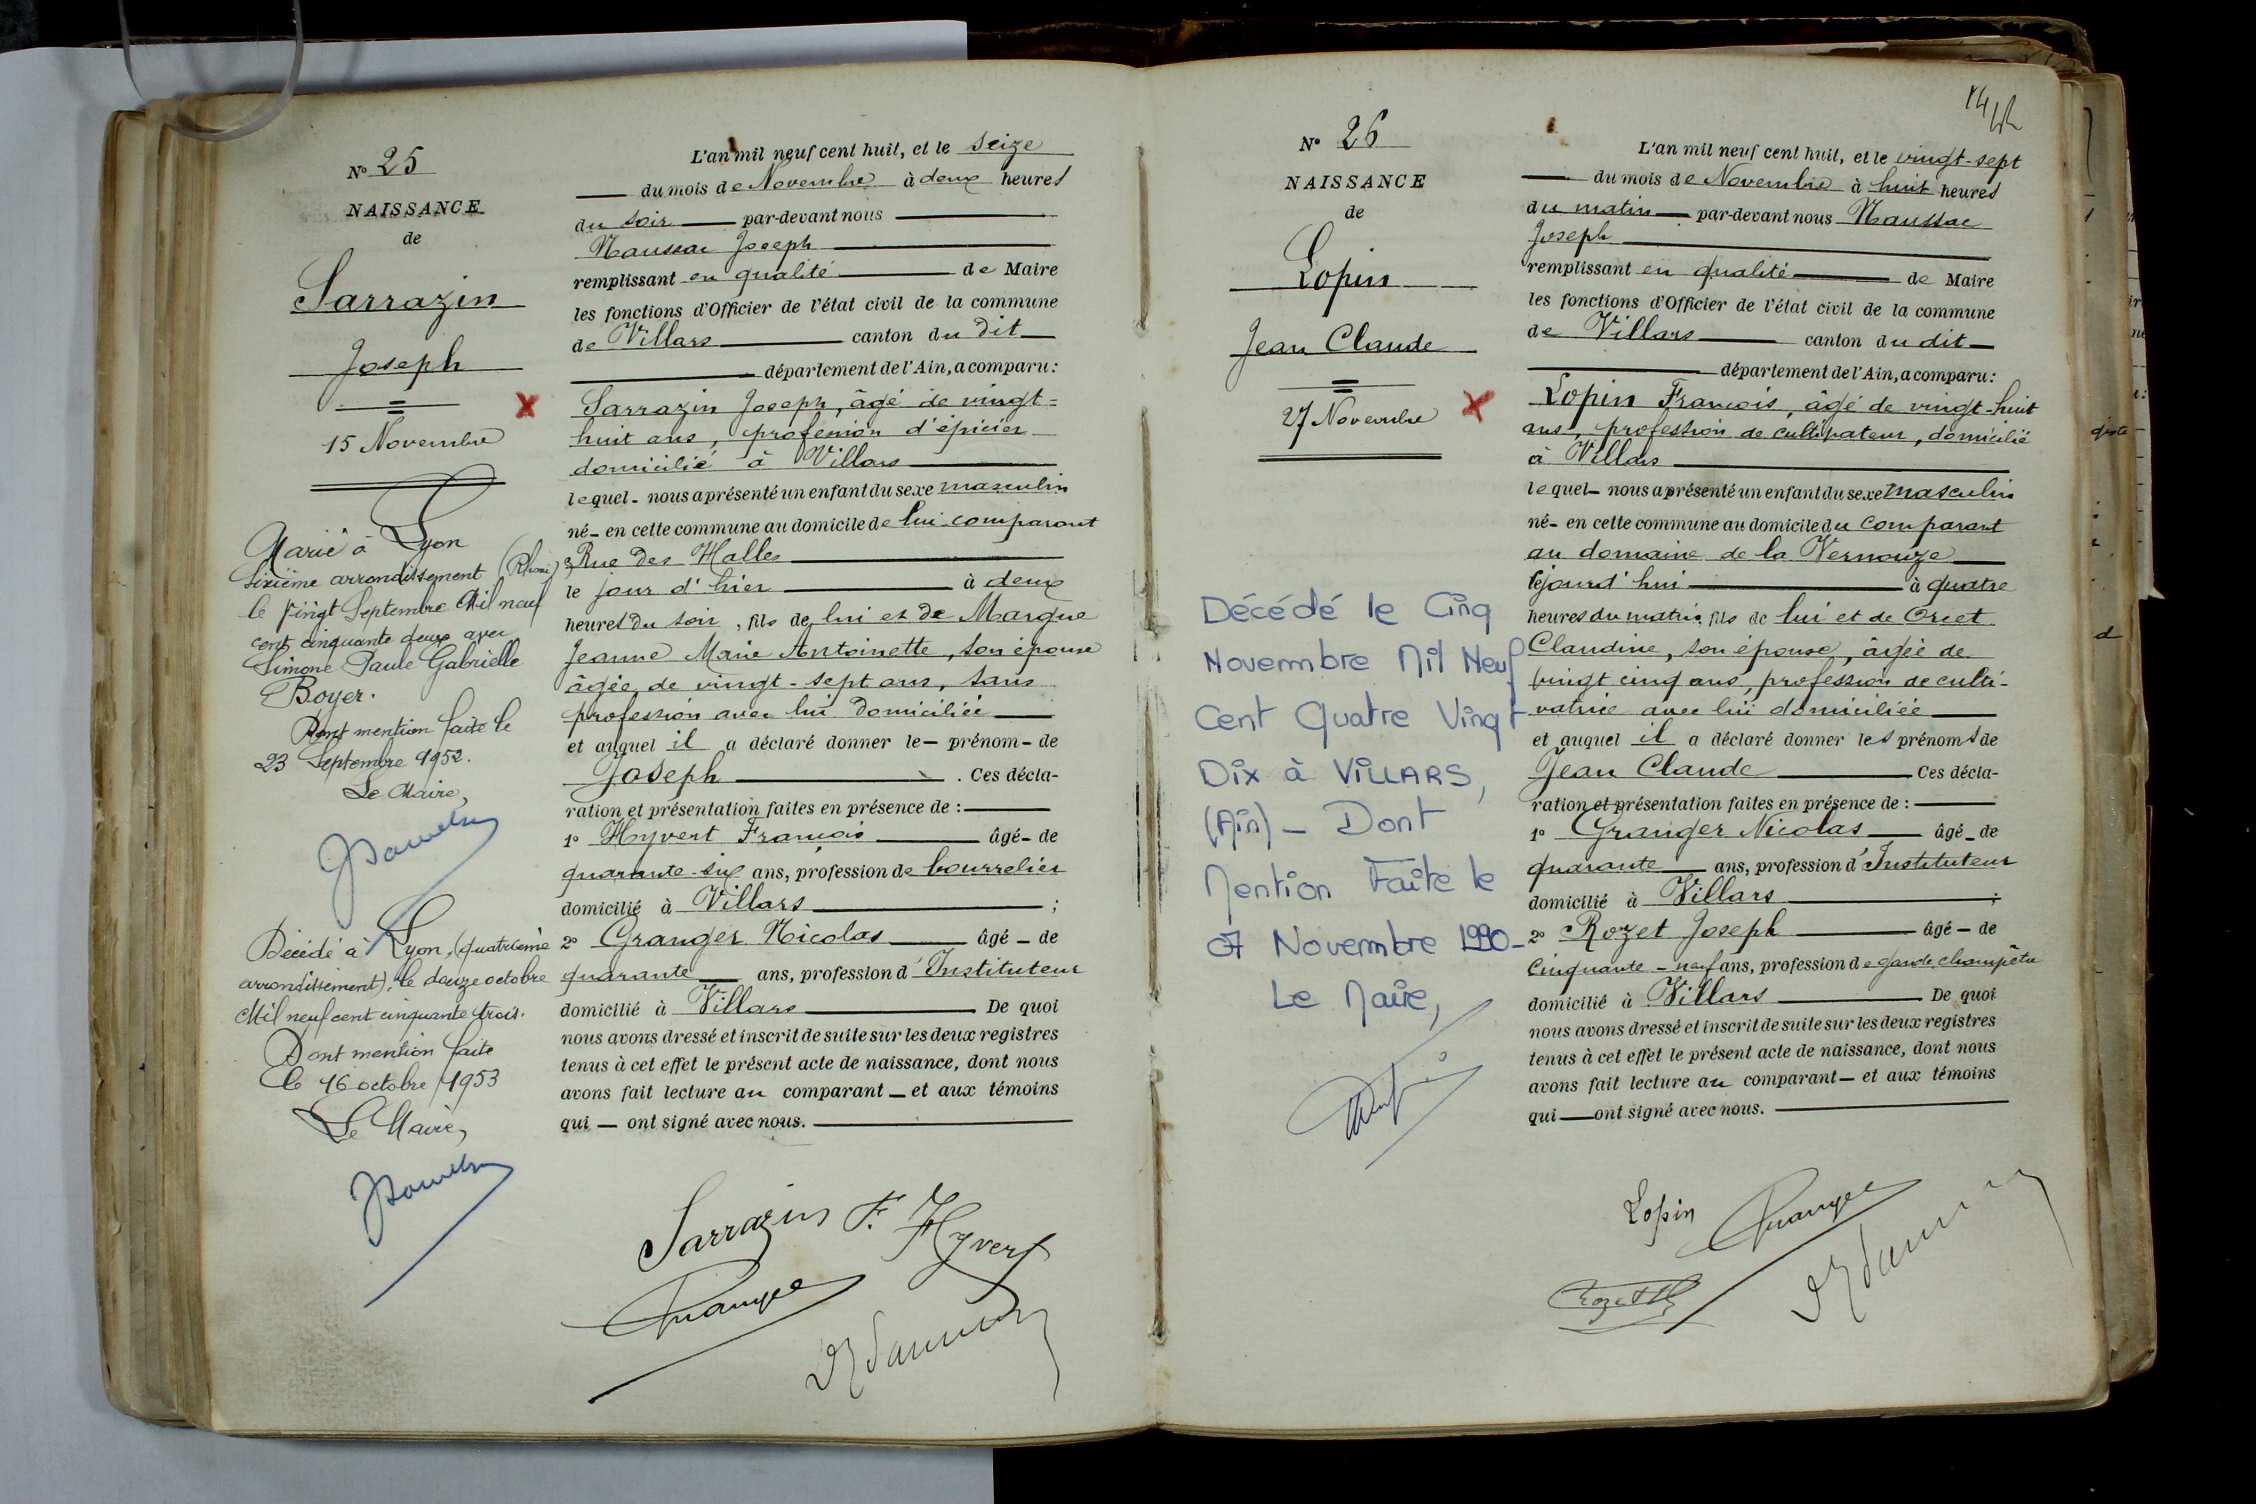 N° 25
NAISSANCE
de
Sarrazin
Joseph
15 Novembre
Marié à Lyon
Sixième arrondissement (Rhône)
le vingt Septembre Mil neuf
cent cinquante deux avec
Simone Paule Gabrielle
Boyer.
Dont mention faite le
23 Septembre 1952.
Le Maire,
Décédé à Lyon, (quatrième
arrondissement), le douze octobre
Mil neuf cent cinquante trois.
Dont mention faite
le 16 octobre 1953
Le Maire,
L'an mil neuf cent huit, et le seize
du mois de Novembre à deux heures
du soir par-devant nous
Naussac Joseph
remplissant en qualité de Maire
les fonctions d'Officier de l'état civil de la commune
de Villars canton du dit
département de l'Ain, a comparu:
Sarrazin Joseph, âgé de vingt-
huit ans, profession d'épicier
domicilié à Villars
lequel - nous a présenté un enfant du sexe masculin
né - en cette commune au domicile de lui comparant
Rue des Halles
le jour d'hier à deux
heures du soir, fils de lui et de Margue
Jeanne Marie Antoinette, son épouse
âgée de vingt-sept ans, sans
profession avec lui domiciliée
et auquel il a déclaré donner le - prénom - de
Joseph . Ces décla-
ration et présentation faites en présence de :
1° Hyvert François âgé - de
quarante-six ans, profession de bourrelier
domicilié à Villars ;
2° Granger Nicolas âgé - de
quarante ans, profession d'Instituteur
domicilié à Villars De quoi
nous avons dressé et inscrit de suite sur les deux registres
tenus à cet effet le présent acte de naissance, dont nous
avons fait lecture au comparant - et aux témoins
qui - ont signé avec nous.
Sarrazin F. Hyvert
Granger
N° 26
NAISSANCE
de
Lopin
Jean Claude
27 Novembre
Décédé le Cinq
Novembre Mil Neuf
Cent Quatre Vingt
Dix à VILLARS,
(Ain) - Dont
Mention Faite le
07 Novembre 1990-
Le Maire,
L'an mil neuf cent huit, et le vingt-sept
du mois de Novembre à huit heures
du matin par-devant nous Naussac
Joseph
remplissant en qualité de Maire
les fonctions d'Officier de l'état civil de la commune
de Villars canton du dit
département de l'Ain, a comparu:
Lopin François, âgé de vingt-huit
ans, profession de cultivateur, domicilié
à Villars
lequel - nous a présenté un enfant du sexe masculin
né - en cette commune au domicile du comparant
au domaine de la Vernouze
cejourd'hui à quatre
heures du matin, fils de lui et de Orcet
Claudine, son épouse, âgée de
vingt cinq ans, profession de culti-
vatrice avec lui domiciliée
et auquel il a déclaré donner les prénoms de
Jean Claude Ces décla-
ration et présentation faites en présence de :
1° Granger Nicolas âgé - de
quarante ans, profession d'Instituteur
domicilié à Villars ;
2° Rozet Joseph âgé - de
Cinquante-neuf ans, profession de garde champêtre
domicilié à Villars De quoi
nous avons dressé et inscrit de suite sur les deux registres
tenus à cet effet le présent acte de naissance, dont nous
avons fait lecture au comparant - et aux témoins
qui - ont signé avec nous.
Lopin Granger